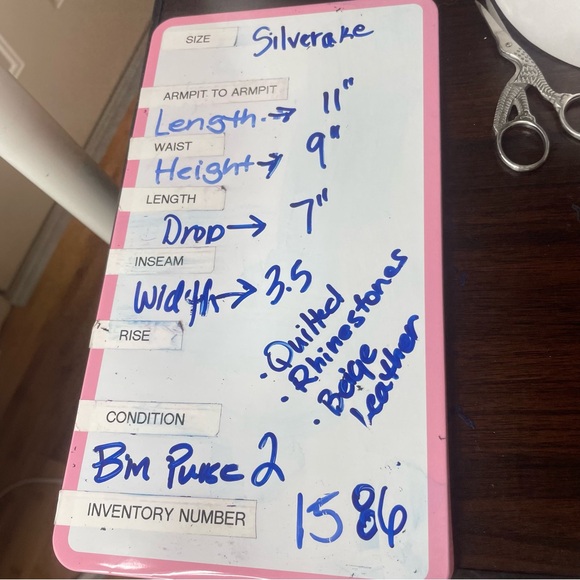 SIZE Silverake
ARMPIT TO ARMPIT
Length → 11"
WAIST
Height → 9"
LENGTH
Drop → 7"
INSEAM
Width → 3.5
RISE
• Quilted
• Rhinestones
• Beige
Leather
CONDITION
Bin Purse 2
INVENTORY NUMBER 1586